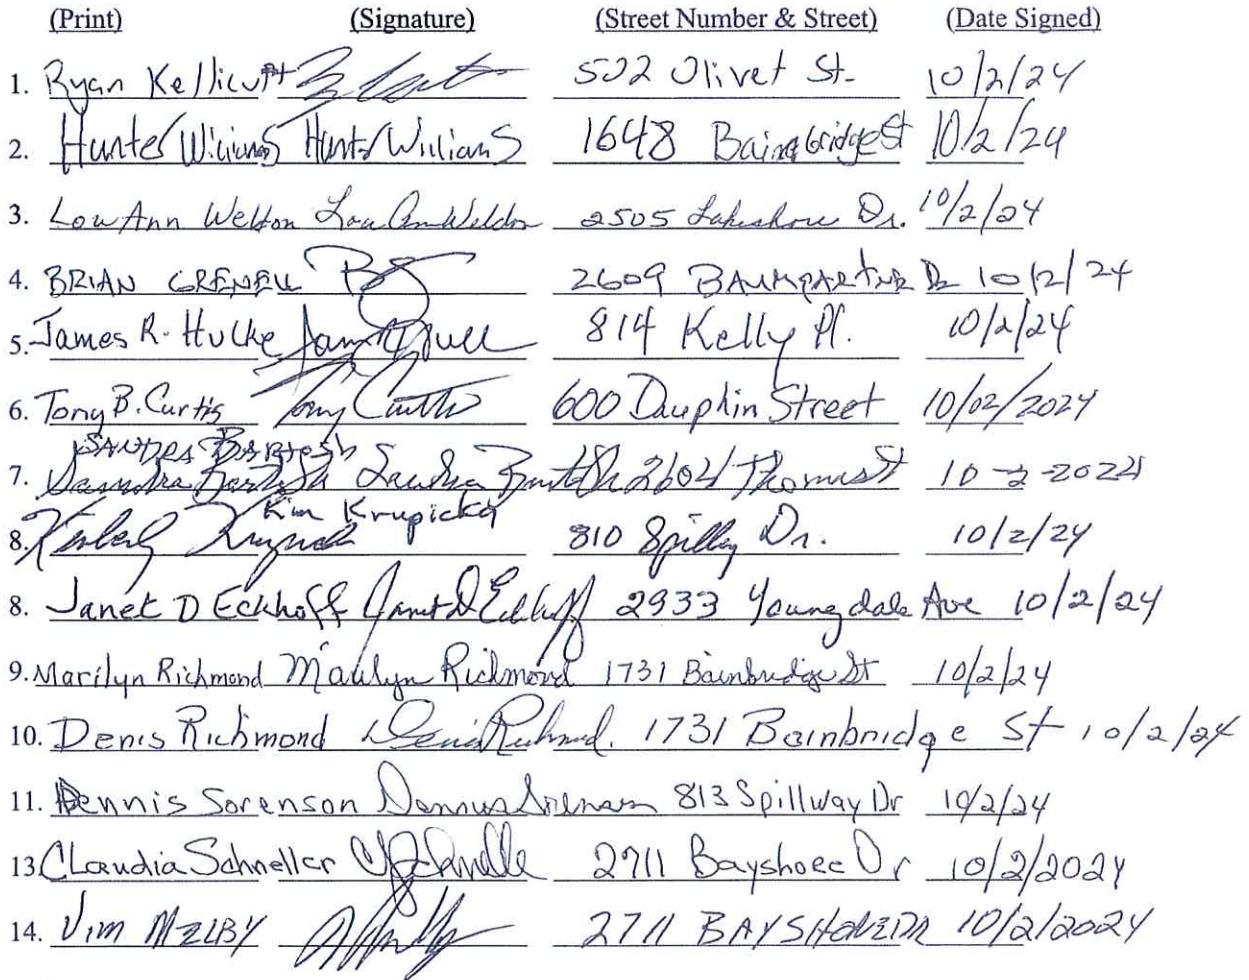 (Print) (Signature) (Street Number & Street) (Date Signed)
1. Ryan Kellicutt 502 Olivet St. 10/2/24
2. Hunter Williams Hunter Williams 1648 Bainbridge St 10/2/24
3. Lou Ann Weldon Lou Ann Weldon 2505 Lakeshore Dr. 10/2/24
4. BRIAN GRENELL 2609 BAUMGARTNER Dr 10/2/24
5. James R. Hulke 814 Kelly Pl. 10/2/24
6. Tony B. Curtis Tony Curtis 600 Dauphin Street 10/02/2024
SANDRA BARTOSH
7. Sandra Bartosh Sandra Bartosh 2604 Thomas St 10-2-2024
Kim Krupicka
8. Kimberly Krupicka 810 Spillway Dr. 10/2/24
8. Janet D Eckhoff Janet D Eckhoff 2933 Youngdale Ave 10/2/24
9. Marilyn Richmond Marilyn Richmond 1731 Bainbridge St 10/2/24
10. Denis Richmond Denis Richmond 1731 Bainbridge St 10/2/24
11. Dennis Sorenson Dennis Sorenson 813 Spillway Dr 10/2/24
13. CLaudia Schneller 2711 Bayshore Dr 10/2/2024
14. Jim MELBY 2711 BAYSHORE DR 10/2/2024